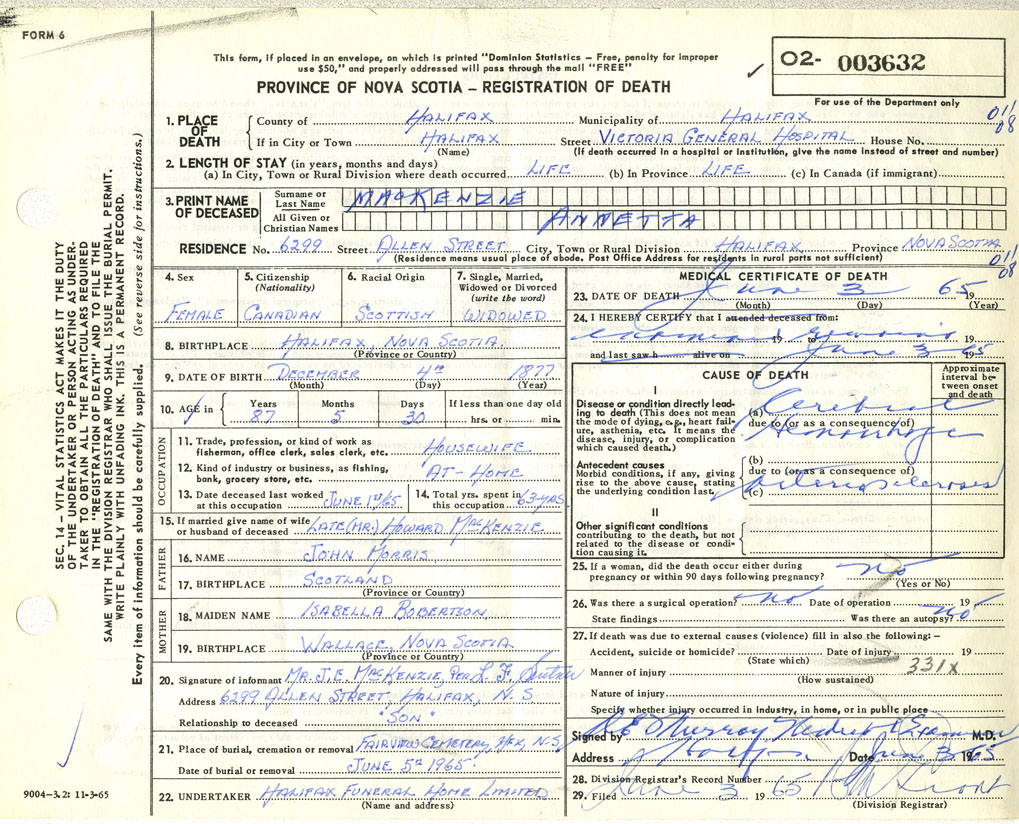 FORM 6
This form, if placed in an envelope, on which is printed "Dominion Statistics – Free, penalty for improper
use $50," and properly addressed will pass through the mail "FREE"
PROVINCE OF NOVA SCOTIA – REGISTRATION OF DEATH
✓ 02- 003632
For use of the Department only
011
08
1. PLACE OF DEATH
County of HALIFAX Municipality of HALIFAX
If in City or Town HALIFAX Street VICTORIA GENERAL HOSPITAL House No.
(Name) (If death occurred in a hospital or institution, give the name instead of street and number)
2. LENGTH OF STAY (in years, months and days)
(a) In City, Town or Rural Division where death occurred LIFE (b) In Province LIFE (c) In Canada (if immigrant)
3. PRINT NAME OF DECEASED
Surname or Last Name MACKENZIE
All Given or Christian Names ANNETTA
RESIDENCE No. 6299 Street ALLEN STREET City, Town or Rural Division HALIFAX Province NOVA SCOTIA
(Residence means usual place of abode. Post Office Address for residents in rural parts not sufficient)
011
08
4. Sex
FEMALE
5. Citizenship
(Nationality)
CANADIAN
6. Racial Origin
SCOTTISH
7. Single, Married,
Widowed or Divorced
(write the word)
WIDOWED
8. BIRTHPLACE HALIFAX, NOVA SCOTIA
(Province or Country)
9. DATE OF BIRTH DECEMBER 4th 1877
(Month) (Day) (Year)
10. AGE in
Years Months Days If less than one day old
87 5 30 hrs. or min.
OCCUPATION
11. Trade, profession, or kind of work as
fisherman, office clerk, sales clerk, etc. HOUSEWIFE
12. Kind of industry or business, as fishing,
bank, grocery store, etc. AT-HOME
13. Date deceased last worked
at this occupation JUNE 1st/65
14. Total yrs. spent in
this occupation 63-YRS
15. If married give name of wife
or husband of deceased LATE (MR.) HOWARD MACKENZIE
FATHER
16. NAME JOHN MORRIS
17. BIRTHPLACE SCOTLAND
(Province or Country)
MOTHER
18. MAIDEN NAME ISABELLA ROBERTSON
19. BIRTHPLACE WALLACE, NOVA SCOTIA
(Province or Country)
20. Signature of informant MR. J.E. MACKENZIE, PER L. F.
Address 6299 ALLEN STREET, HALIFAX, N. S
Relationship to deceased "SON"
21. Place of burial, cremation or removal FAIRVIEW CEMETERY, HFX, N.S.
Date of burial or removal JUNE 5th 1965
22. UNDERTAKER HALIFAX FUNERAL HOME LIMITED
(Name and address)
MEDICAL CERTIFICATE OF DEATH
23. DATE OF DEATH June 3 1965
(Month) (Day) (Year)
24. I HEREBY CERTIFY that I attended deceased from:
19 to
and last saw h alive on June 3 1965
CAUSE OF DEATH
Approximate
interval be-
tween onset
and death
I
Disease or condition directly lead-
ing to death (This does not mean
the mode of dying, e.g., heart fail-
ure, asthenia, etc. It means the
disease, injury, or complication
which caused death.)
(a) Cerebral
due to (or as a consequence of)
Hemorrhage
Antecedent causes
Morbid conditions, if any, giving
rise to the above cause, stating
the underlying condition last.
(b)
due to (or as a consequence of)
(c) Arteriosclerosis
II
Other significant conditions
contributing to the death, but not
related to the disease or condi-
tion causing it.
25. If a woman, did the death occur either during
pregnancy or within 90 days following pregnancy? no
(Yes or No)
26. Was there a surgical operation? no Date of operation 19
State findings Was there an autopsy? no
27. If death was due to external causes (violence) fill in also the following: –
Accident, suicide or homicide? Date of injury 19
(State which)
Manner of injury 331X
(How sustained)
Nature of injury
Specify whether injury occurred in industry, in home, or in public place
Signed by Murray Medical Examiner M.D.
Address Halifax Date June 3 1965
28. Division Registrar's Record Number
29. Filed June 3 1965
(Division Registrar)
SEC. 14 – VITAL STATISTICS ACT MAKES IT THE DUTY
OF THE UNDERTAKER OR PERSON ACTING AS UNDER-
TAKER TO OBTAIN ALL THE PARTICULARS REQUIRED
IN THE "REGISTRATION OF DEATH" AND TO FILE THE
SAME WITH THE DIVISION REGISTRAR WHO SHALL ISSUE THE BURIAL PERMIT.
WRITE PLAINLY WITH UNFADING INK. THIS IS A PERMANENT RECORD.
Every item of information should be carefully supplied. (See reverse side for instructions.)
9004-3.2: 11-3-65